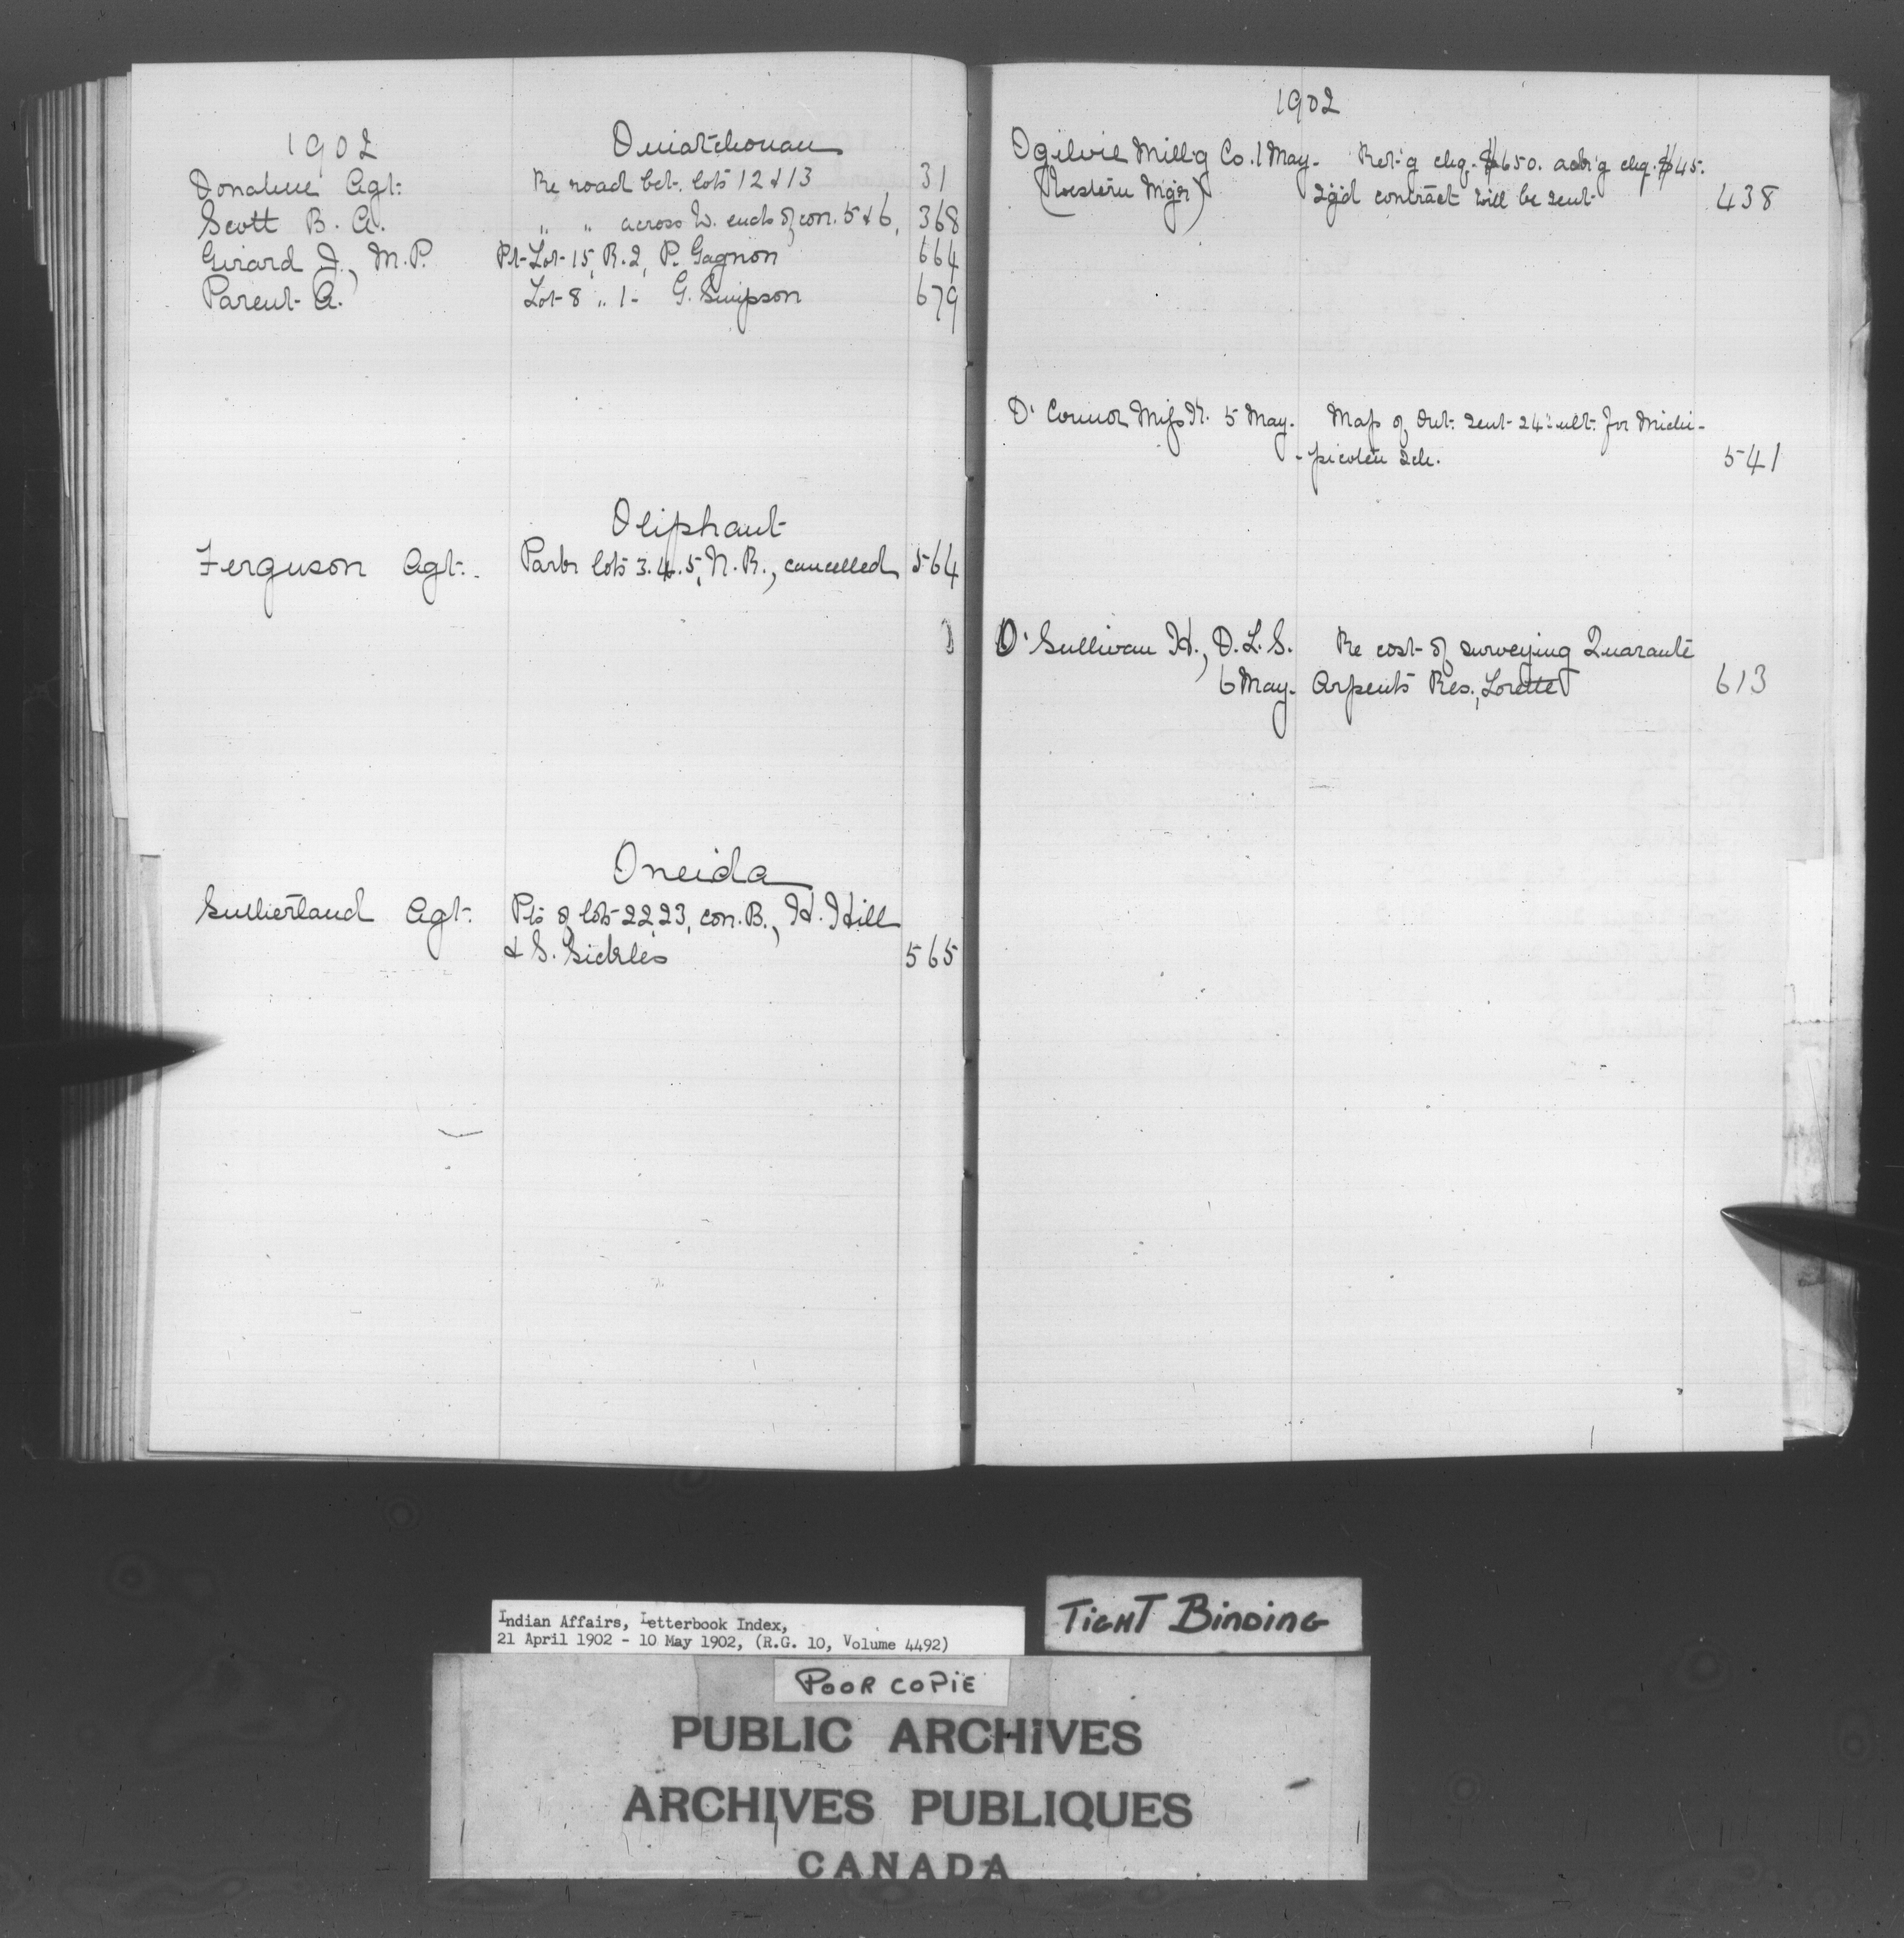 1902 Ouiatchouan
Donahue Agt. Re road bet. lots 12 & 13 31
Scott B. A. " " across W. ends of con. 5 & 6, 368
Girard J., M.P. Pt-Lot-15, R.2, P. Gagnon 664
Parent A. Lot-8 " 1- G. Simpson 679
Oliphant
Ferguson Agt. Park lots 3.4.5, N.R., cancelled 564
Oneida
Sutherland Agt. Pts of lots 22, 23, con. B., H. Hill
& S. Sickles 565
1902
Ogilvie Mill'g Co. 1 May. Ret'g chq. $650. ack'g chq. $45.
(Western Mg'r) Sg'd contract will be sent 438
O'Connor Miss K. 5 May. Map of Ont. sent 24th ult. for Michi-
-picoten Sch. 541
O'Sullivan H., D.L.S. Re cost of surveying Quarante
6 May. Arpents Res., Lorette 613
TIGHT BINDING
Indian Affairs, Letterbook Index,
21 April 1902 - 10 May 1902, (R.G. 10, Volume 4492)
POOR COPIE
PUBLIC ARCHIVES
ARCHIVES PUBLIQUES
CANADA